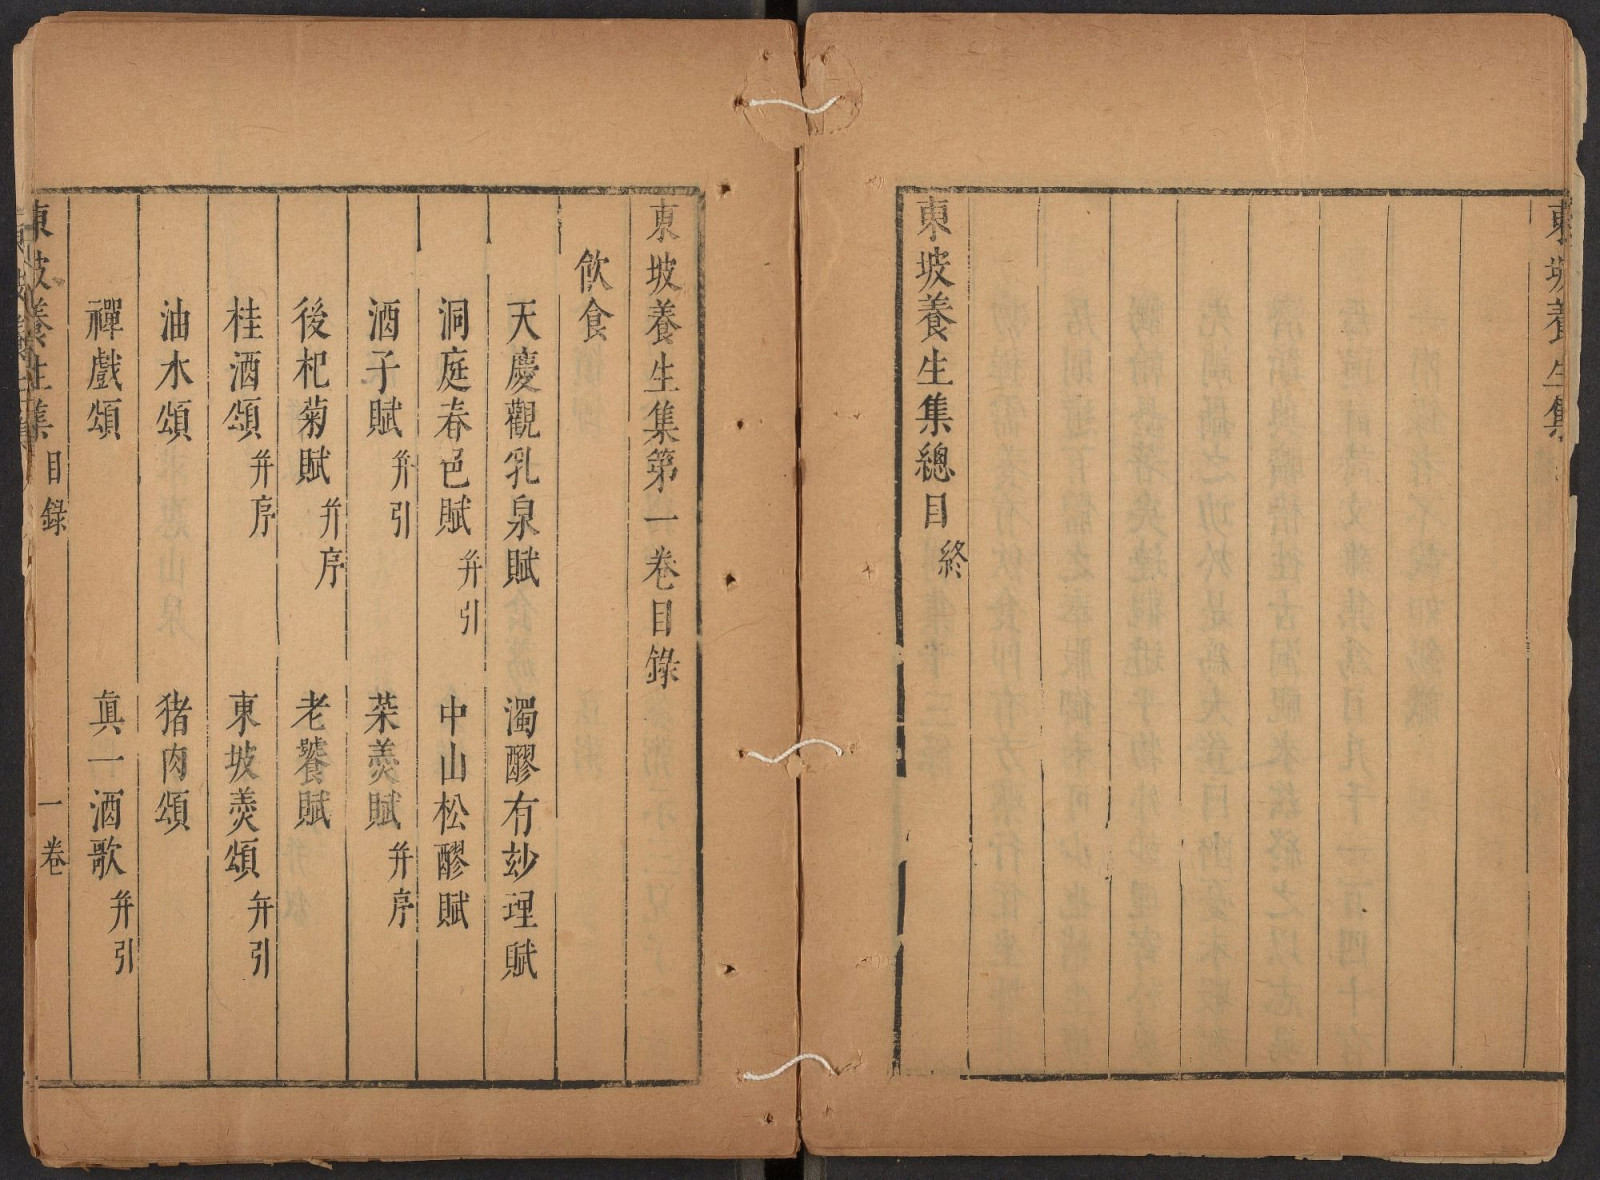 東坡養生集
東坡養生集總目 終
東坡養生集第一卷目錄
飲食
天慶觀乳泉賦 濁醪有玅理賦
洞庭春色賦 并引 中山松醪賦
酒子賦 并引 菜羹賦 并序
後杞菊賦 并序 老饕賦
桂酒頌 并序 東坡羹頌 并引
油水頌 猪肉頌
禪戲頌 眞一酒歌 并引
東坡養生集 目錄 一卷